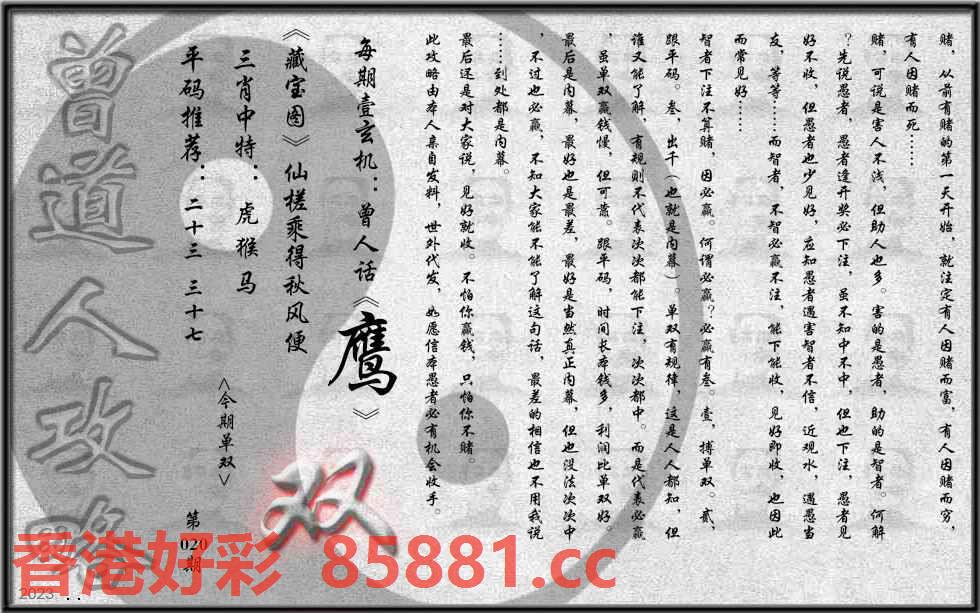 赌，从前有赌的第一天开始，就注定有人因赌而富，有人因赌而穷，
有人因赌而死……
赌，可说是害人不浅，但助人也多。害的是愚者，助的是智者。何解
？先说愚者，愚者逢开奖必下注，虽不知中不中，但也下注，愚者见
好不收，但愚者也少见好，应知愚者遇害智者不信，近观水，遇愚当
友，等等……而智者，不智必赢不注，能下能收，见好即收，也因此
而常见好……
智者下注不算赌，因必赢。何谓必赢？必赢有叁。壹，搏单双。贰，
跟平码。叁，出千（也就是内幕）。单双有规律，这是人人都知，但
谁又能了解，有规则不代表次次都能下注，次次都中。而是代表必赢
，虽单双赢钱慢，但可靠。跟平码，时间长本钱多，利润比单双好。
最后是内幕，最好也是最差，最好是当然真正内幕，但也没法次次中
，不过也必赢，不知大家能不能了解这句话，最差的相信也不用我说
……到处都是内幕。
最后还是对大家说，见好就收。不怕你赢钱，只怕你不赌。
此攻略由本人亲自发料，世外代发，如愿信本愚者必有机会收手。
每期壹玄机：曾人话《鹰》
《藏宝图》仙槎乘得秋风便
三肖中特：虎猴马
平码推荐：二十三 三十七
<今期单双>
双
第
020
期
曾道人攻略
香港好彩 85881.cc
2023